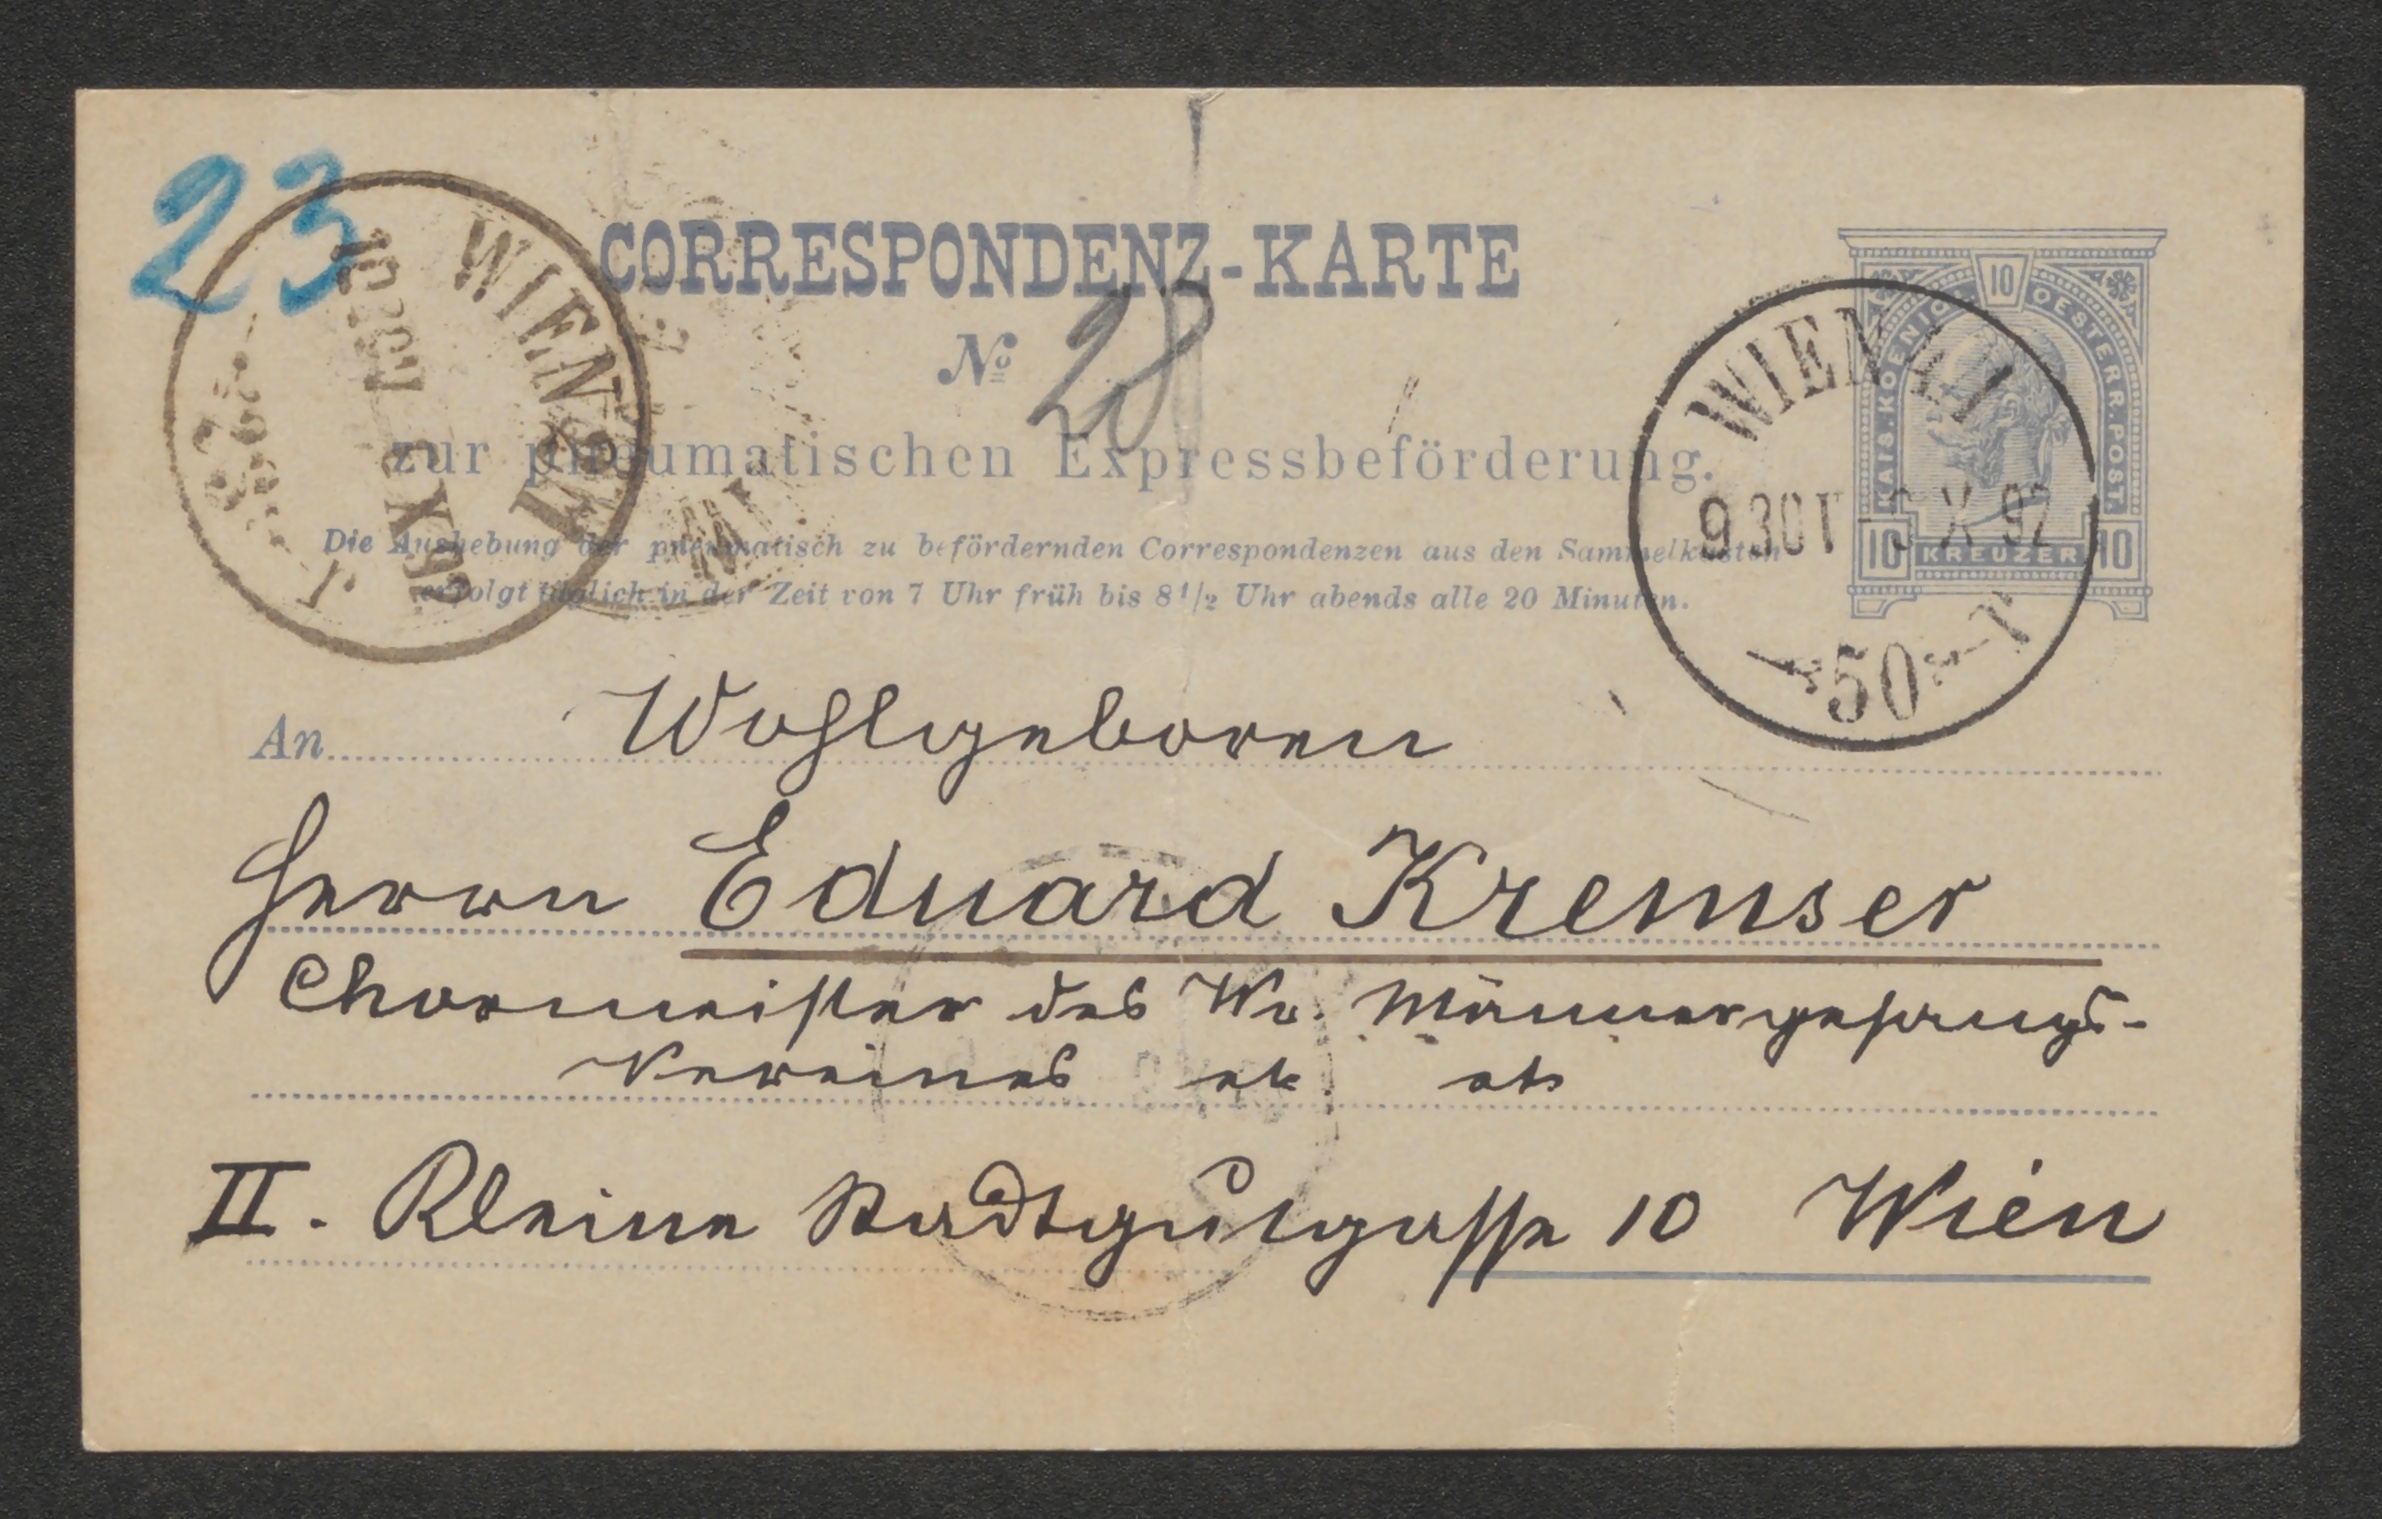 23
CORRESPONDENZ-KARTE
No 28
zur pneumatischen Expressbeförderung.
Die Aushebung der pneumatisch zu befördernden Correspondenzen aus den Sammelkästen
erfolgt täglich in der Zeit von 7 Uhr früh bis 8 1/2 Uhr abends alle 20 Minuten.
WIEN
WIEN
9 30 X 92
50 T
KAIS. KOENIGL. OESTERR. POST.
10
10 KREUZER 10
An Wohlgeboren
Herrn Eduard Kremser
Chormeister des Wr. Männergesangs-
Vereines etc etc
II. Kleine Stadtgutgasse 10 Wien